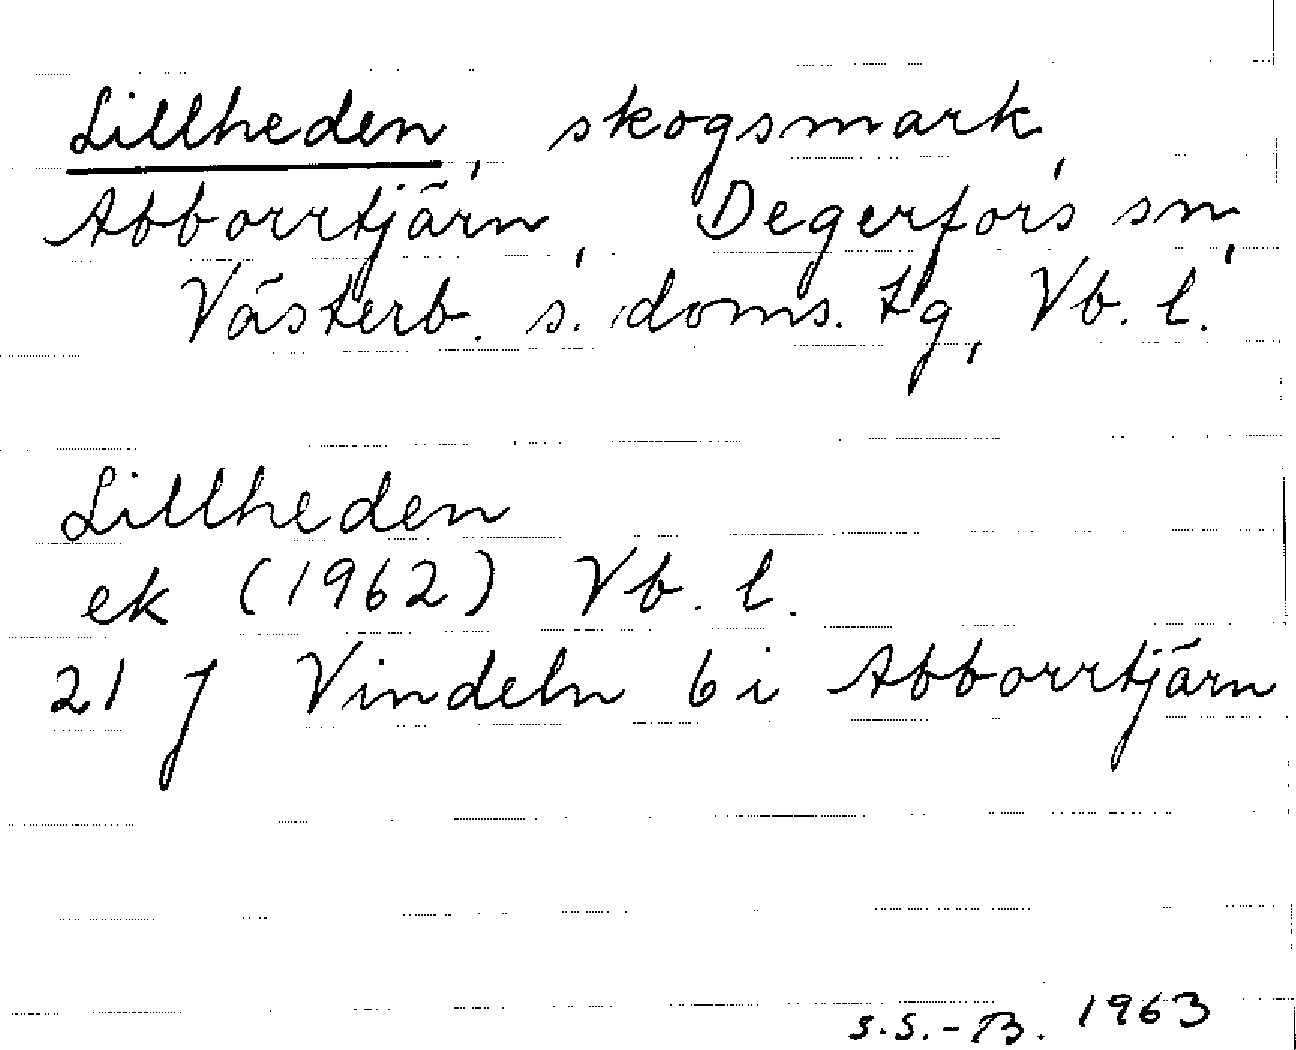 Lillheden, skogsmark,
Abborrtjärn, Degerfors sn,
Västerb. s. doms. tg, Vb. l.
Lillheden
ek (1962) Vb. l.
21 J Vindeln 6 i Abborrtjärn
S.S.-B. 1963